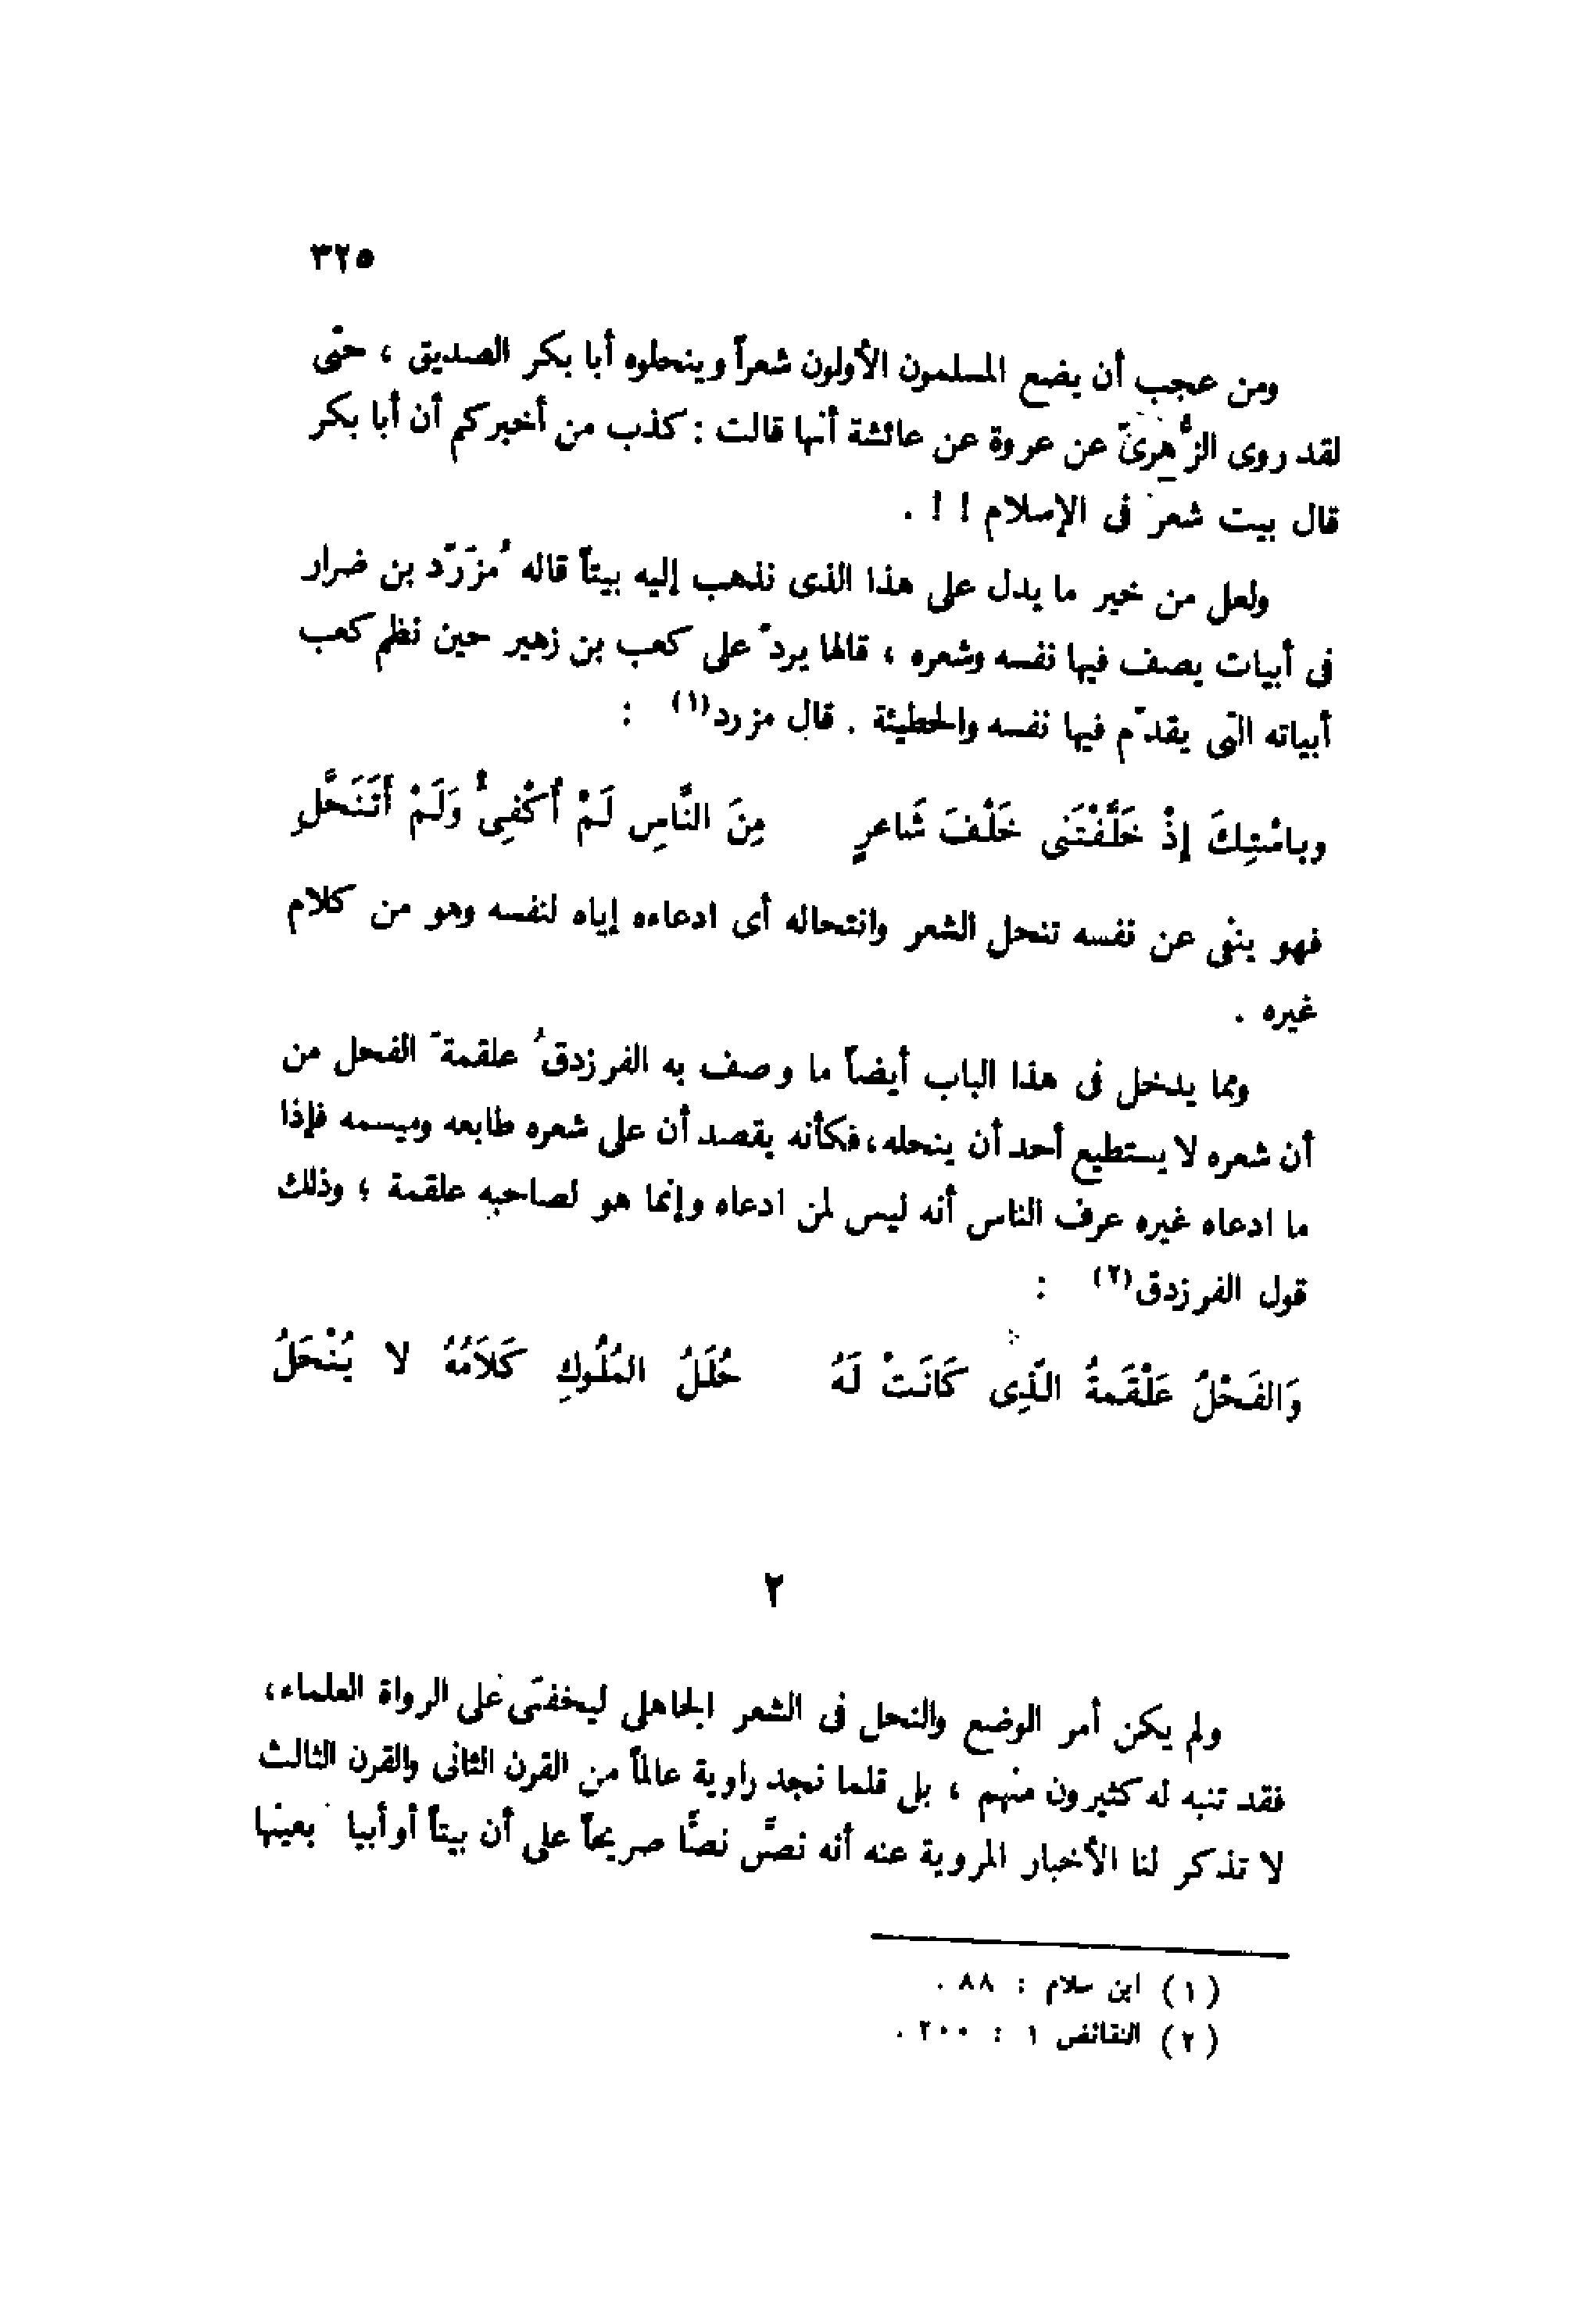 ٣٢٥
ومن عجب أن يضع المسلمون الأولون شعراً وينحلوه أبا بكر الصديق ، حتى
لقد روى الزُّهرِىّ عن عروة عن عائشة أنها قالت : كذب من أخبركم أن أبا بكر
قال بيت شعر فى الإسلام ! ! .
ولعل من خير ما يدل على هذا الذى نذهب إليه بيتاً قاله مُزَرّد بن ضرار
فى أبيات يصف فيها نفسه وشعره ، قالها يردّ على كعب بن زهير حين نظم كعب
أبياته التى يقدّم فيها نفسه والحطيئة . قال مزرد(١) :
وباسْتِكَ إذْ خَلَّفْتَنى خَلْفَ شَاعرٍ مِنَ النَّاسِ لَمْ أُكْفِئْ وَلَمْ أَتَنَحَّلِ
فهو ينفى عن نفسه تنحل الشعر وانتحاله أى ادعاءه إياه لنفسه وهو من كلام
غيره .
ومما يدخل فى هذا الباب أيضاً ما وصف به الفرزدقُ علقمةَ الفحل من
أن شعره لا يستطيع أحد أن ينحله، فكأنه يقصد أن على شعره طابعه وميسمه فإذا
ما ادعاه غيره عرف الناس أنه ليس لمن ادعاه وإنما هو لصاحبه علقمة ؛ وذلك
قول الفرزدق(٢) :
وَالفَحْلُ عَلْقَمةُ الَّذِى كَانَتْ لَهُ حُلَلُ المُلُوكِ كَلاَمُهُ لا يُنْحَلُ
٢
ولم يكن أمر الوضع والنحل فى الشعر الجاهلى ليخفَى على الرواة العلماء،
فقد تنبه له كثيرون منهم ، بل قلما نجد راوية عالماً من القرن الثانى والقرن الثالث
لا تذكر لنا الأخبار المروية عنه أنه نصَّ نصًّا صريحاً على أن بيتاً أو أبيا بعينها
(١) ابن سلام : ٨٨ .
(٢) النقائض ١ : ٢٠٠ .